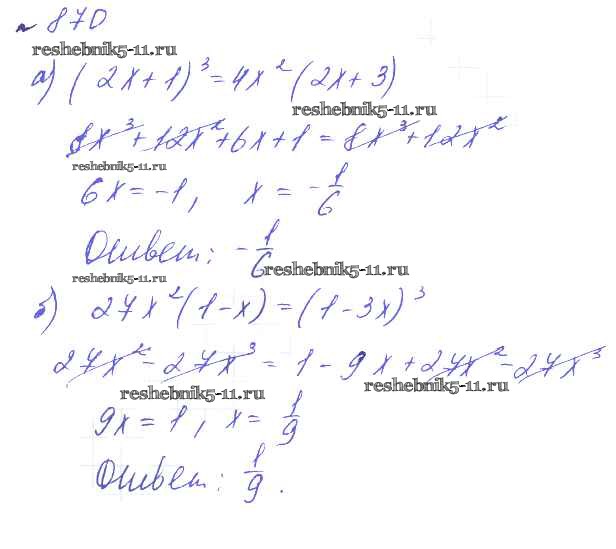 № 870
reshebnik5-11.ru
а) (2x+1)³=4x²(2x+3)
reshebnik5-11.ru
8x³+12x²+6x+1=8x³+12x²
reshebnik5-11.ru
6x=-1, x=-1/6
Ответ: -1/6
reshebnik5-11.ru
reshebnik5-11.ru
б) 27x²(1-x)=(1-3x)³
27x²-27x³=1-9x+27x²-27x³
reshebnik5-11.ru
reshebnik5-11.ru
9x=1, x=1/9
Ответ: 1/9.